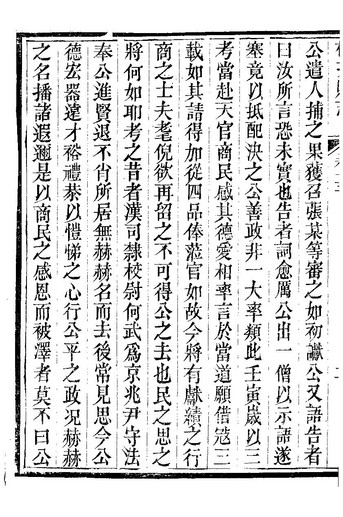 公遣人捕之果獲召張某等審之如初讞公又語告者
曰汝所言恐未實也告者詞愈厲公出一僧以示語遂
塞竟以抵配決之公善政非一大率類此壬寅歲以三
考當赴天官商民感其德愛相率言於當道願借寇三
載如其請得加從四品俸蒞官如故今將有獻績之行
商之士夫耄倪欲再留之不可得公之去也民之思之
將何如耶考之昔者漢司隸校尉何武爲京兆尹守法
奉公進賢退不肖所居無赫赫名而去後常見思今公
德宏器達才裕禮恭以愷悌之心行公平之政况赫赫
之名播諸遐邇是以商民之感恩而被澤者莫不曰公